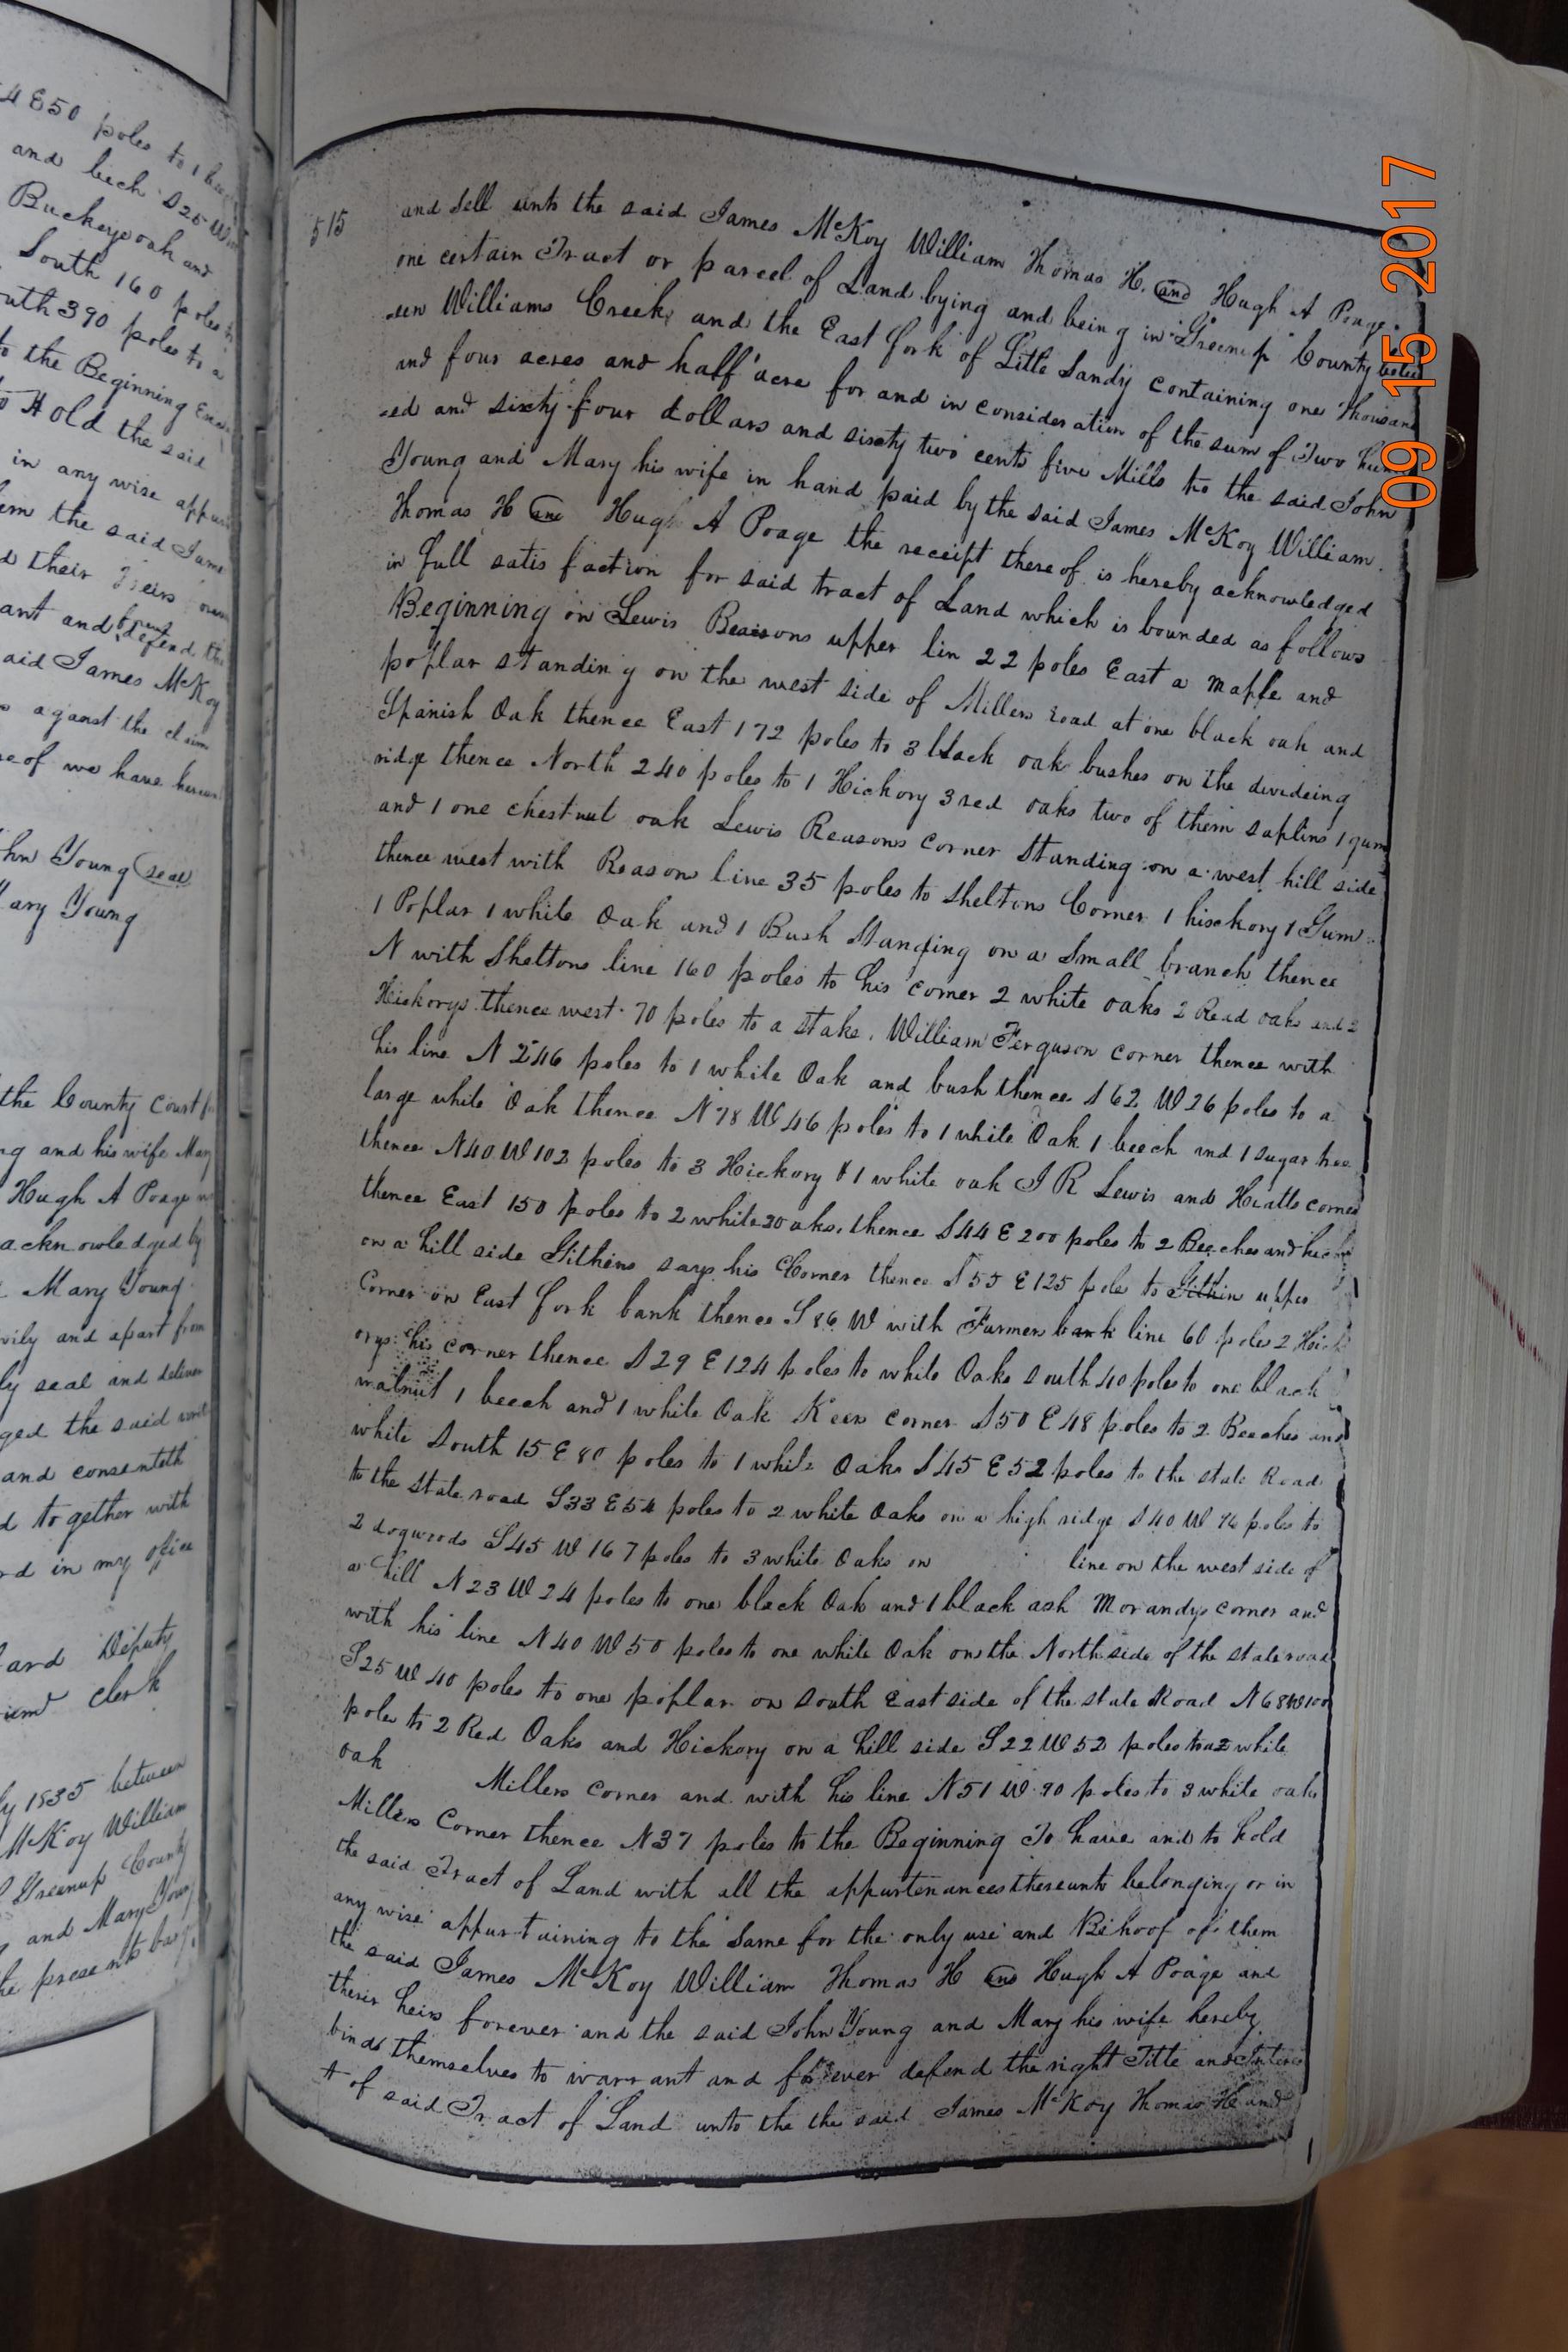 4 E50 poles to 1
and beech S25 W
Buckeye oak and
South 160 poles
outh 390 poles to a
to the Beginning
to Hold the said
in any wise appur
em the said Jame
d their Heirs
ant and defend the
aid James McKoy
s aganst the claim
reof we have hereun
hn Young (seal)
ary Young
the County Court
ng and his wife Mary
Hugh A Poage
acknowledged by
Mary Young
vily and apart from
ly seal and deliver
ged the said
and consenteth
d together with
rd in my office
ard Deputy
Clerk
ly 1835 between
McKoy William
Greenup County
and Mary Young
the presents
515
and sell unto the said James McKoy William Thomas H. and Hugh A Poage
one certain Tract or parcel of Land lying and being in Greenup County betw
een Williams Creek and the East fork of Little Sandy containing one Thousand
and four acres and half acre for and in consideration of the sum of Two hund
-ed and sixty four dollars and sixty two cents five Mills to the said John
Young and Mary his wife in hand paid by the said James McKoy William
Thomas H and Hugh A Poage the receipt thereof is hereby acknowledged
in full satisfaction for said tract of Land which is bounded as follows
Beginning on Lewis Reasons upper lin 22 poles East a maple and
poplar standing on the west side of Millers road at one black oak and
Spanish Oak thence East 172 poles to 3 black oak bushes on the divideing
ridge thence North 240 poles to 1 Hickory 3 red oaks two of them saplins 1 gum
and 1 one chestnut oak Lewis Reasons corner Standing on a west hill side
thence west with Reason line 35 poles to Sheltons Corner 1 hisckory 1 Gum
1 Poplar 1 white Oak and 1 Bush Standing on a Small branch thence
N with Sheltons line 160 poles to his corner 2 white oaks 2 Read oaks and 2
Hickorys thence west 70 poles to a stake William Ferguson corner thence with
his line N 246 poles to 1 white Oak and bush thence S 62 W 26 poles to a
large white Oak thence N 78 W 46 poles to 1 white Oak 1 beech and 1 sugar tree
thence N 40 W 102 poles to 3 Hickory & 1 white oak J R Lewis and Hiatts corner
thence East 150 poles to 2 white oaks thence S 44 E 200 poles to 2 Beeches and
on a hill side Githens says his Corner thence S 55 E 125 pole to Githin upper
Corner on East fork bank thence S 86 W with Furmen bank line 60 poles 2 Hick
orys his corner thence S 29 E 124 poles to white Oaks South 40 poles to one black
walnut 1 beech and 1 white Oak Keen corner S 50 E 48 poles to 2 Beeches and
white South 15 E 80 poles to 1 white Oaks S 45 E 52 poles to the state Road
to the state road S 33 E 54 poles to 2 white Oaks on a high ridge S 40 W 76 poles to
2 dogwoods S 45 W 167 poles to 3 white Oaks on line on the west side of
a hill N 23 W 24 poles to one black Oak and 1 black ash Morandys corner and
with his line N 40 W 50 poles to one white Oak on the North side of the state road
S 25 W 40 poles to one poplar on South East side of the state Road N 68 W 100
poles to 2 Red Oaks and Hickory on a hill side S 22 W 52 poles to a white
Oak Millers corner and with his line N 51 W 90 poles to 3 white oaks
Millers Corner thence N 37 poles to the Beginning To have and to hold
the said Tract of Land with all the appurtenances thereunto belonging or in
any wise appurtaining to the same for the only use and Behoof of them
the said James McKoy William Thomas H and Hugh A Poage and
their heirs forever and the said John Young and Mary his wife hereby
binds themselves to warrant and forever defend the right Title and Interes
t of said Tract of Land unto the the said James McKoy Thomas H and
09 15 2017